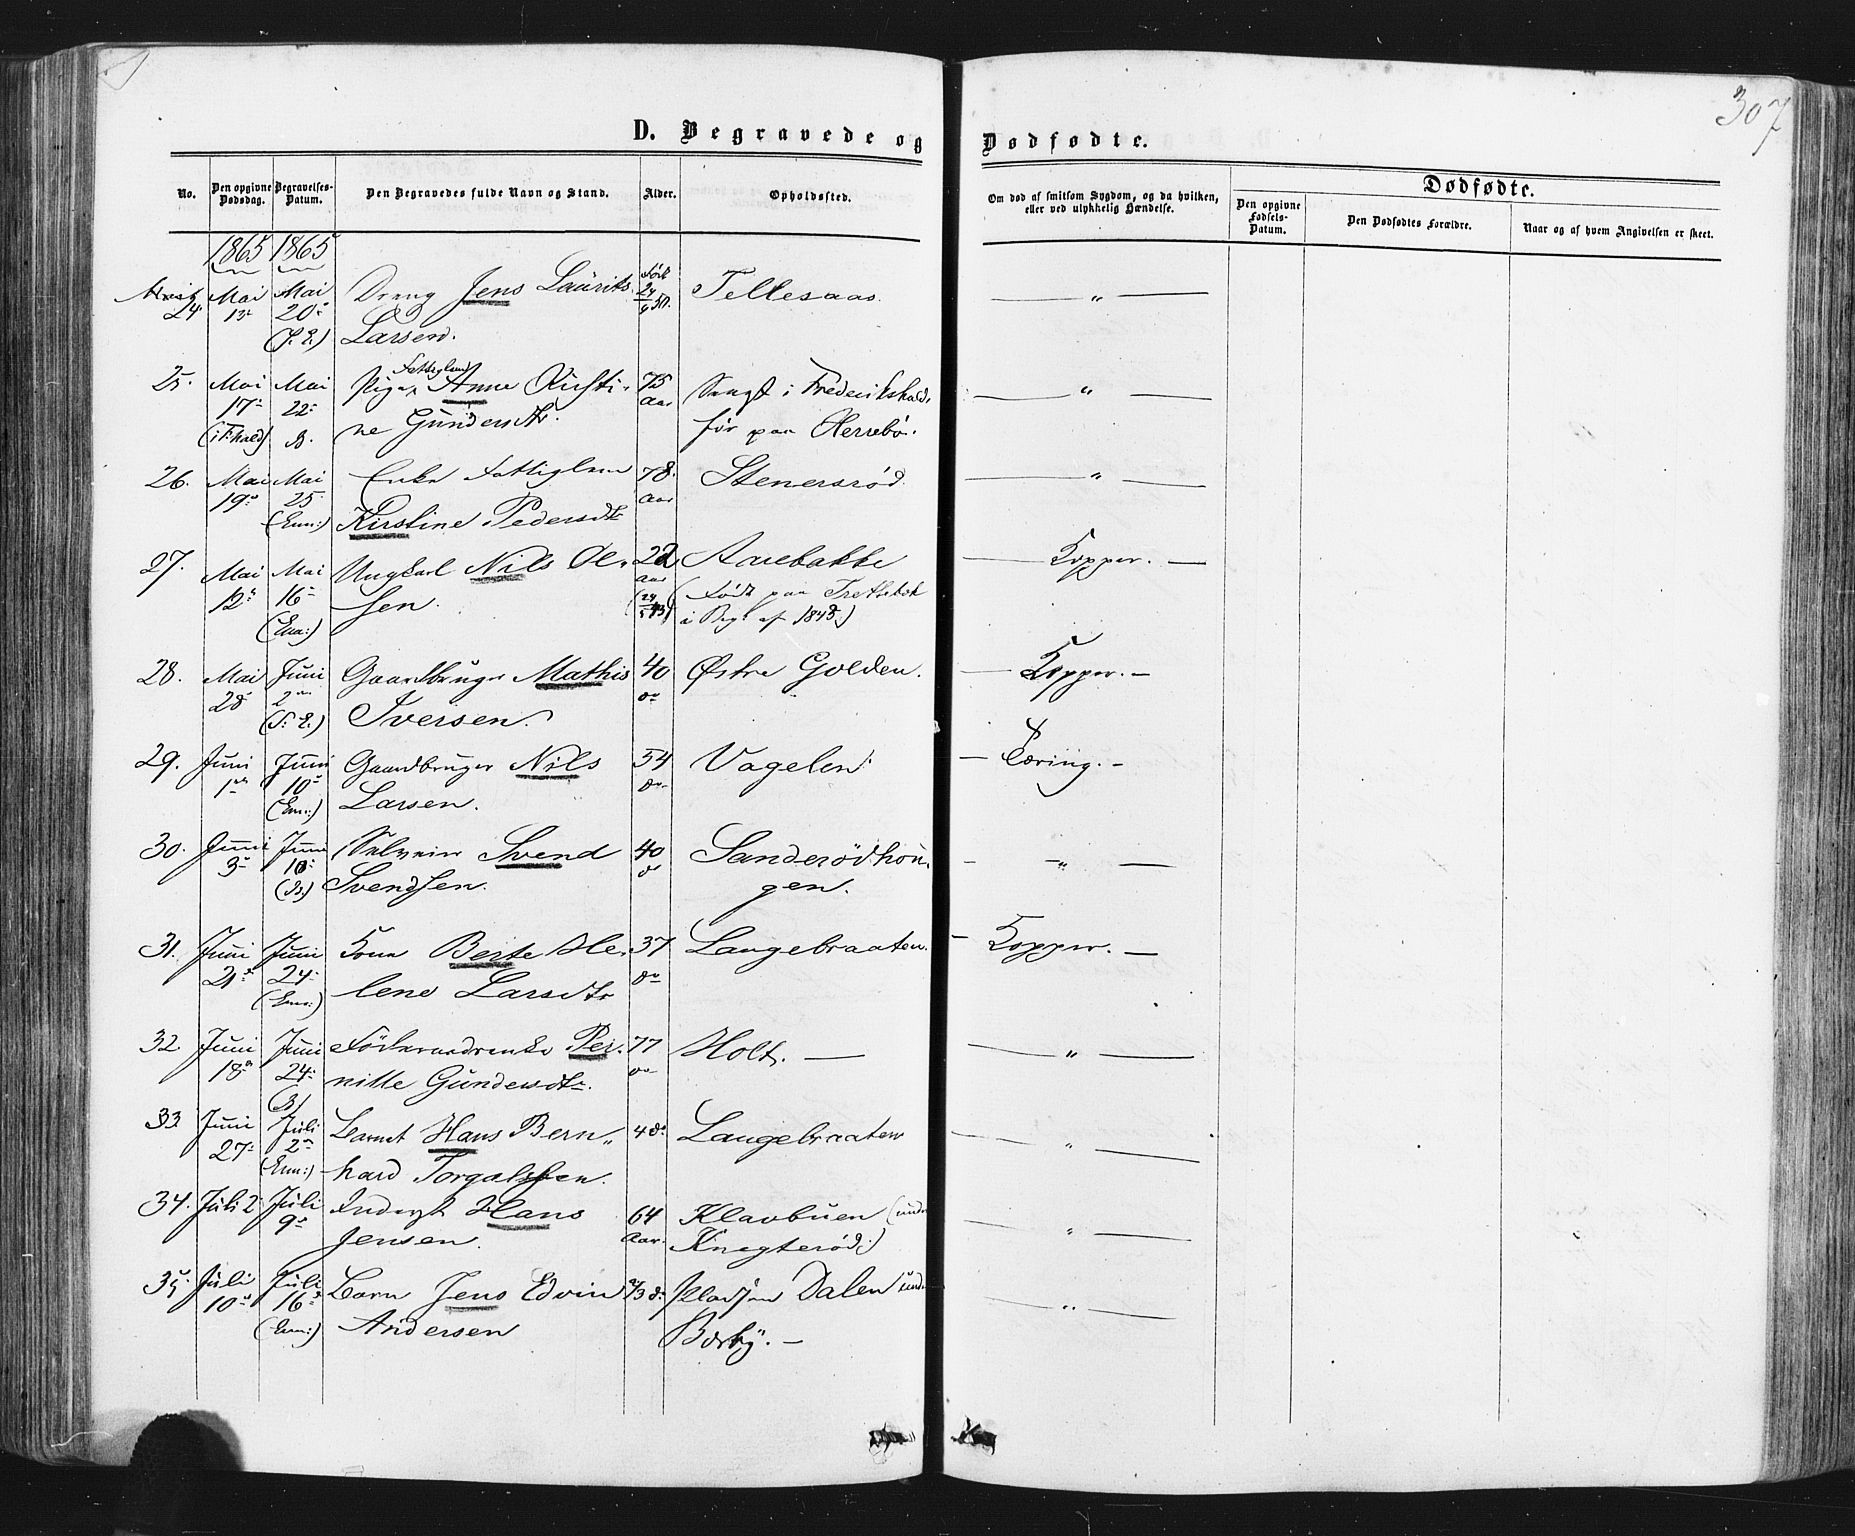 307
D. Begravede og Dødfødte.
No. Den opgivne Dødsdag. Begravelses-Datum. Den Begravedes fulde Navn og Stand. Alder. Opholdssted. Om død af smitsom Sygdom, og da hvilken, eller ved ulykkelig Hændelse. Dødfødte.
Den opgivne Fødsels-Datum. Den Dødfødtes Forældre. Naar og af hvem Angivelsen er skeet.
1865 1865
24 Mai Mai Dreng Jens Laurits Født 24/6 50. Tellesaas — " —
13 20
Larsen.
25. Mai Mai Pige Fattiglem Anne Kristi- 75 Aar i Frederikshald, — " —
17 22 ne Gundersdtr. før paa Herrebø.
(i Fr:hald) B.
26. Mai Mai Enke Fattiglem 78 Aar Stenersrød — " —
19 25
(Enn:) Kirstine Pedersdtr
27. Mai Mai Ungkarl Nils Ol- 22 Aar Aaebakke — Kopper. —
12 16 sen. (24/5 43) (Født paa
(Enn:) i af 1843.)
28. Mai Juni Gaardbruger Mathis 40 Østre Golden. — Kopper. —
28 2
Iversen.
29. Juni Juni Gaardbruger Nils 54 Vagelen — Tæring. —
1 10
(Enn:) Larsen.
30. Juni Juni Svend 40 Sanderødhou- — " —
3 10
(B.) Svendsen. gen.
31. Juni Juni Kone Berte He- 37 Langebraaten. — Kopper. —
21 24
(Enn:) lene Larsdtr
32. Juni Juni Føderaadsenke Per- 77 Holt. — — " —
18 24 nille Gundersdtr.
(B)
33 Juni Juli Barnet Hans Bern- 4 Langebraaten — " —
27 2
(Enn:) hard Torgalssen.
34. Juli 2 Juli Inderst Hans 64 Aar. Klavbuen (under — " —
9
Jensen. Knegterød.)
35. Juli Juli Barn Jens Edvin 2/3 Pladsen Dalen under — " —
10 16
(Enn:) Andersen Børby. —